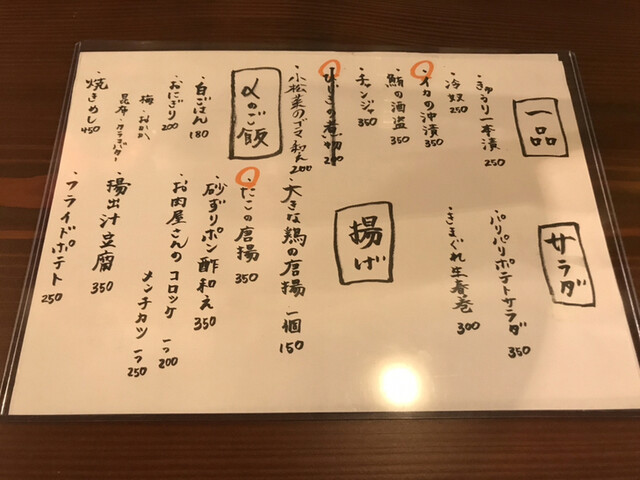 一品
・きゅうり一本漬 250
・冷奴 250
・イカの沖漬 350
・鮪の酒盗 350
・チャンジャ 350
・ひじきの煮物 200
・小松菜のゴマ和え 200
〆のご飯
・白ごはん 180
・おにぎり 200
梅・おかか
昆布・
・焼きめし 450
サラダ
・パリパリポテトサラダ 350
・きまぐれ生春巻 300
揚げ
・大きな鶏の唐揚 一個 150
・たこの唐揚 350
砂ずりポン酢和え 350
・お肉屋さんのコロッケ 一つ 200
メンチカツ 一つ 250
揚出汁豆腐 350
・フライドポテト 250